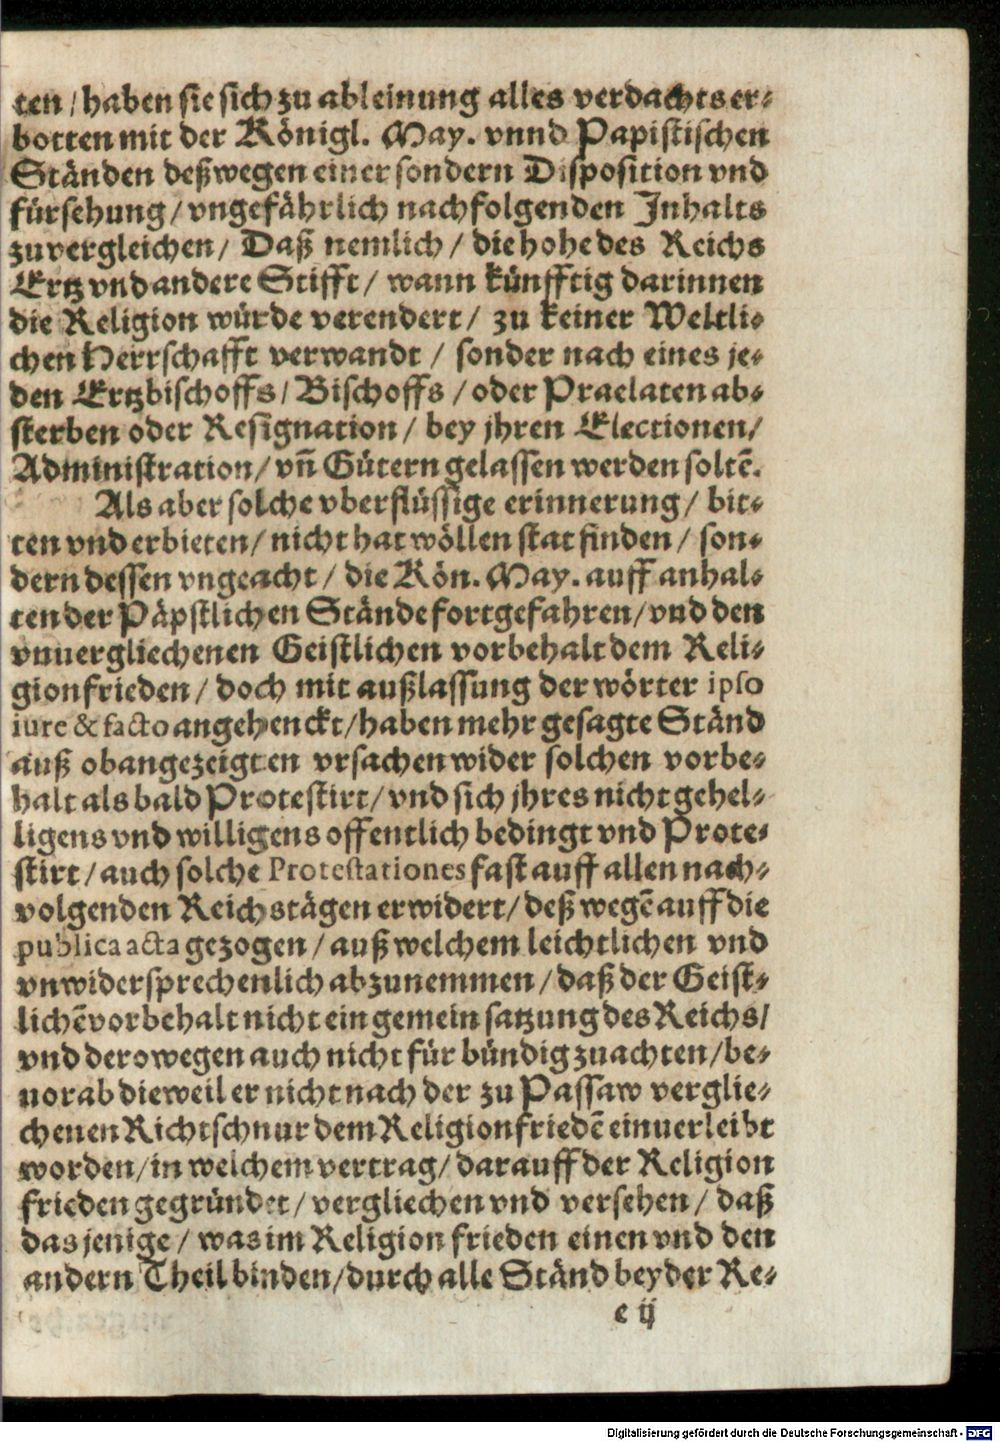 ten / haben sie sich zu ableinung alles verdachts er-
botten mit der Königl. May. vnnd Papistischen
Ständen deßwegen einer sondern Disposition vnd
fürsehung / vngefährlich nachfolgenden Inhalts
zuvergleichen / Daß nemlich / die hohe des Reichs
Ertz vnd andere Stifft / wann künfftig darinnen
die Religion würde verendert / zu keiner Weltli-
chen Herrschafft verwandt / sonder nach eines je-
den Ertzbischoffs / Bischoffs / oder Praelaten ab-
sterben oder Resignation / bey jhren Electionen /
Administration / vñ Gütern gelassen werden soltẽ.
Als aber solche vberflüssige erinnerung / bit-
ten vnd erbieten / nicht hat wöllen stat finden / son-
dern dessen vngeacht / die Kön. May. auff anhal-
ten der Päpstlichen Stände fortgefahren / vnd den
vnuergliechenen Geistlichen vorbehalt dem Reli-
gionfrieden / doch mit außlassung der wörter ipso
iure & facto angehenckt / haben mehr gesagte Ständ
auß obangezeigten vrsachen wider solchen vorbe-
halt als bald Protestirt / vnd sich jhres nicht gehel-
ligens vnd willigens offentlich bedingt vnd Prote-
stirt / auch solche Protestationes fast auff allen nach-
volgenden Reichstägen erwidert / deß wegẽ auff die
publica acta gezogen / auß welchem leichtlichen vnd
vnwidersprechenlich abzunemmen / daß der Geist-
lichẽ vorbehalt nicht ein gemein satzung des Reichs /
vnd derowegen auch nicht für bündig zuachten / be-
uorab dieweil er nicht nach der zu Passaw verglie-
chenen Richtschnur dem Religionfriedẽ einuerleibt
worden / in welchem vertrag / darauff der Religion
frieden gegründet / vergliechen vnd versehen / daß
das jenige / was im Religion frieden einen vnd den
andern Theil binden / durch alle Ständ beyder Re-
e ij
Digitalisierung gefördert durch die Deutsche Forschungsgemeinschaft - DFG